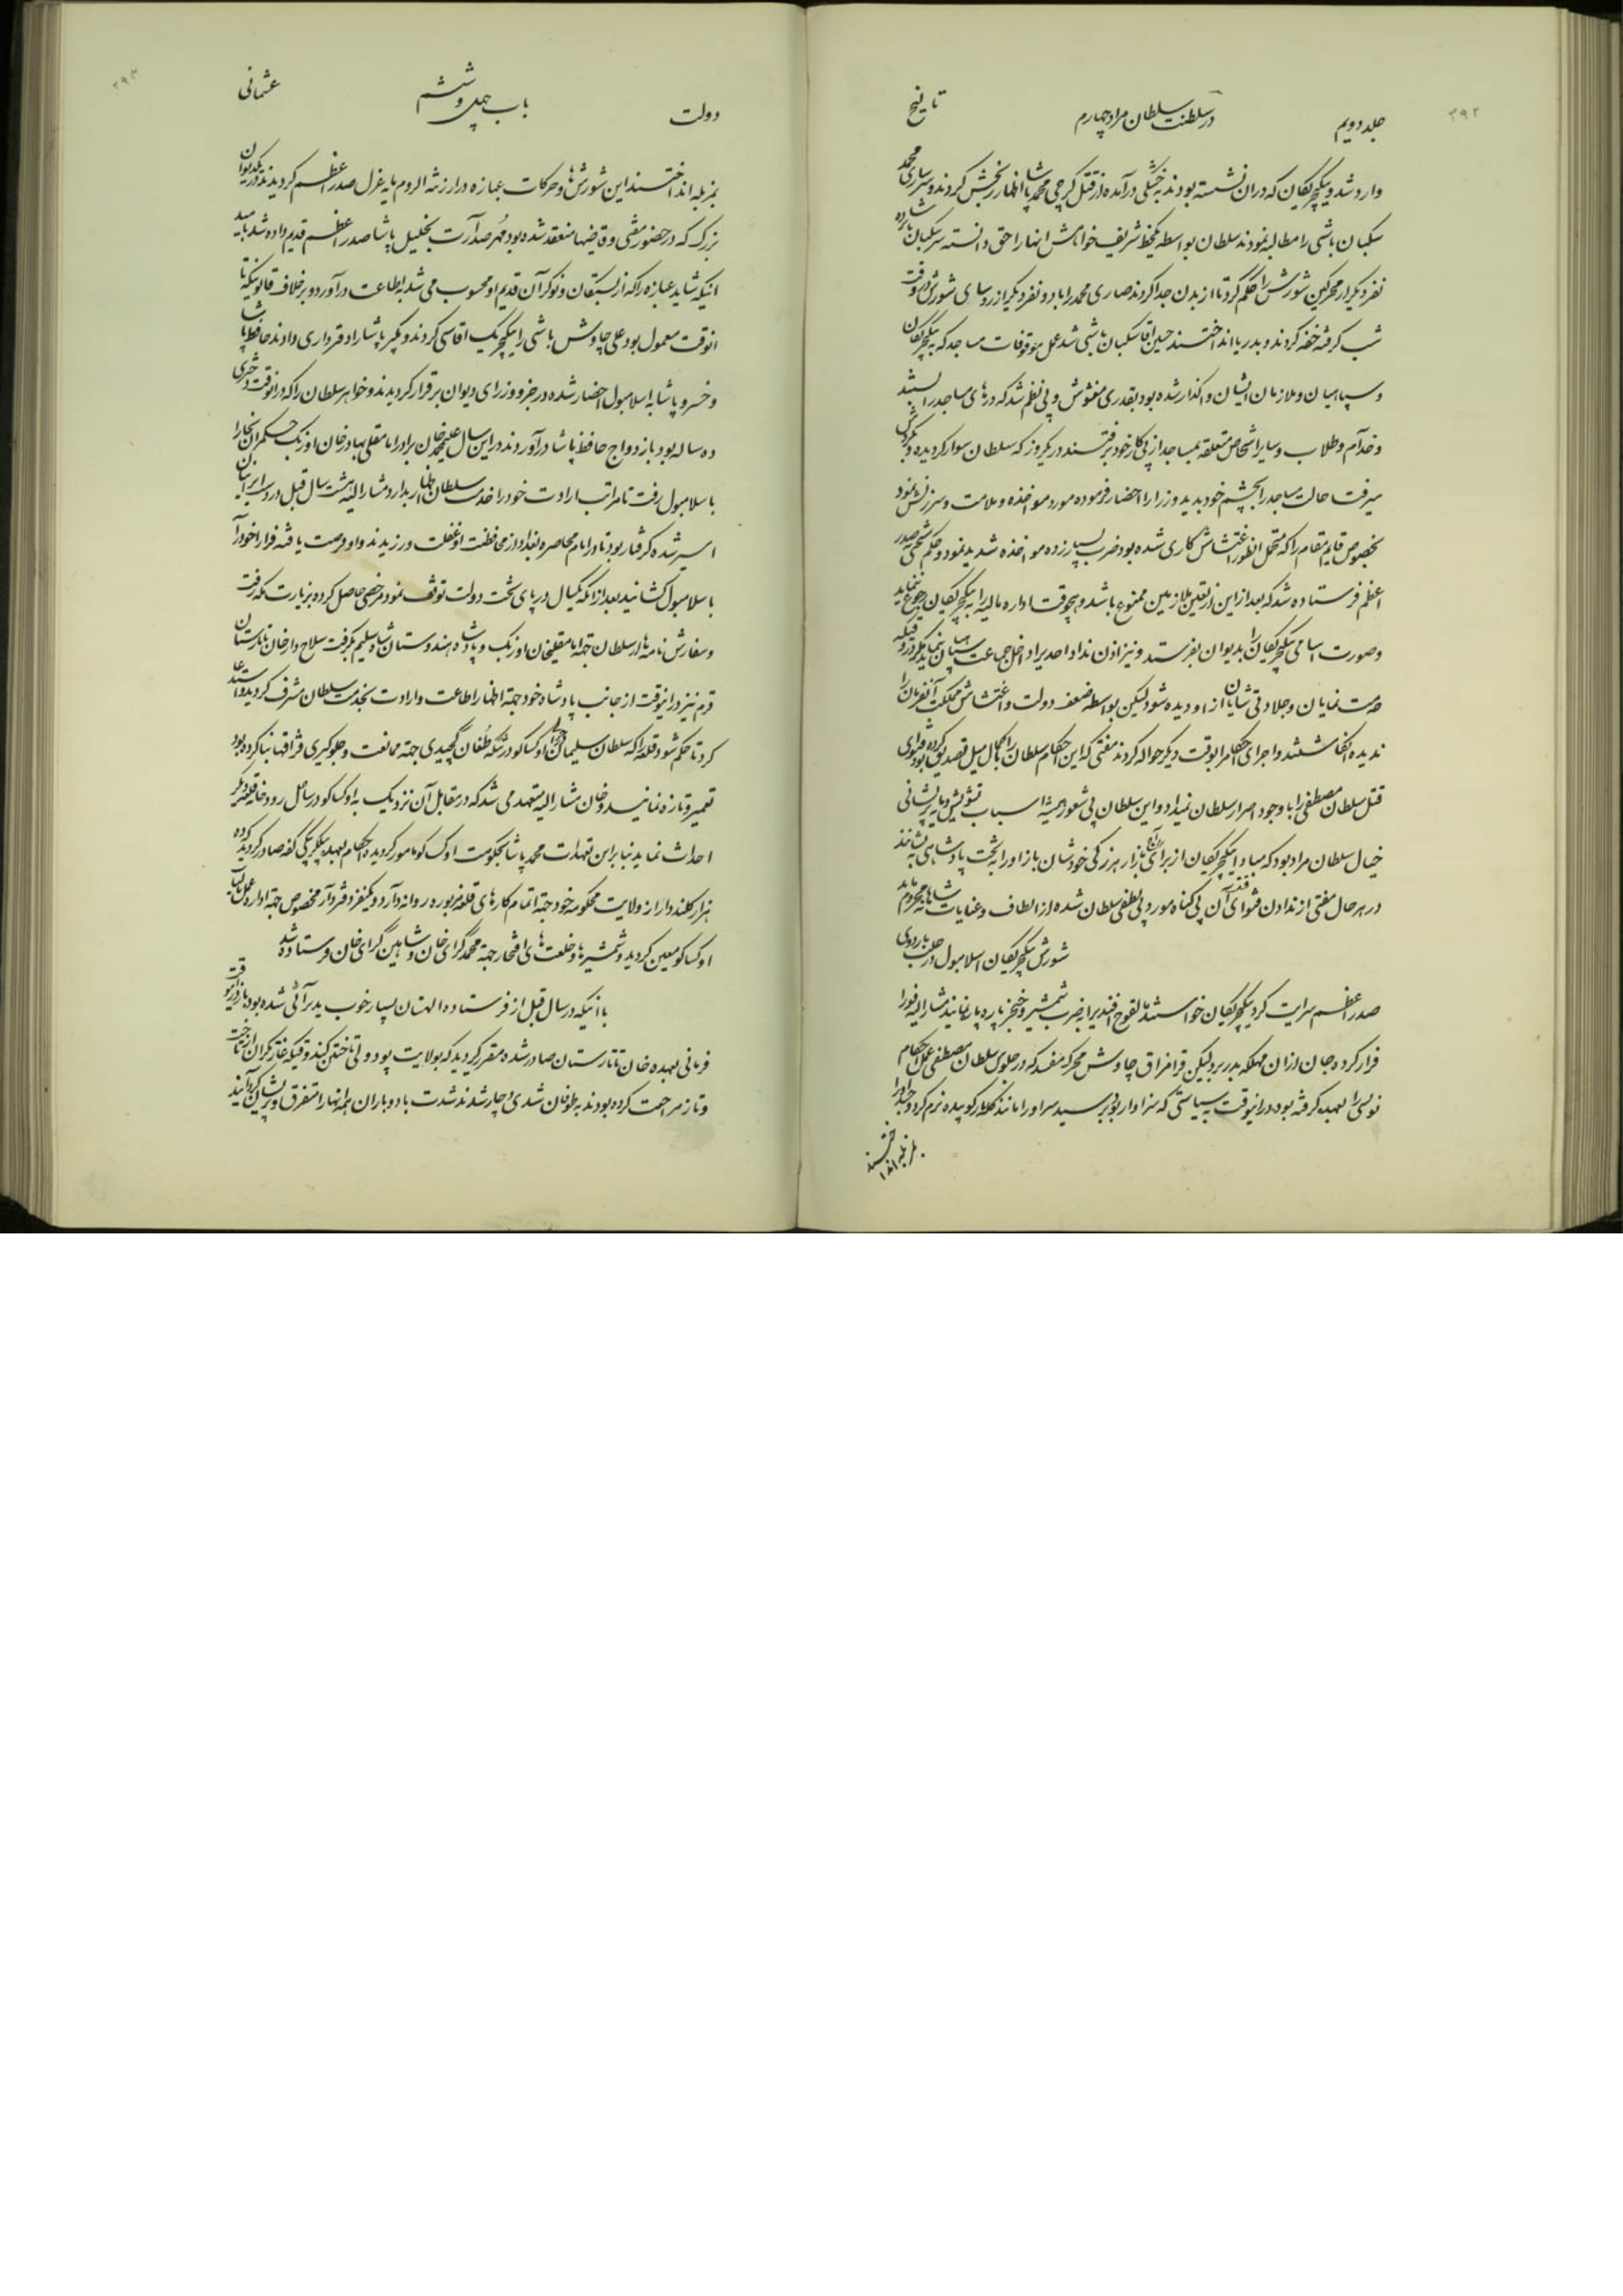 ۳۹۲
جلد دویم در سلطنت سلطان مراد چهارم تاریخ
وارد شد و ینگچریکان که در ان نشسته بودند بخشکی درآمده از قتل کرجی محمد پاشا اظهار رنجش کردند و سر ساری محمد
سکبان باشی را مطالبه نمودند سلطان بواسطه یکخط شریف خواهش انها را حق دانسته سر سکبان را با ده
نفر دیکر از محرکین شورش را حکم کرد تا از بدن جدا کردند صاری محمد را با دو نفر دیکر از روسای شورش در وقت
شب کرفته خفه کردند و بدریا انداختند حسین اقا سکبان باشی شد عمل موقوفات مساجد که به ینگچریکان
و سپاهیان و ملازمان ایشان واکذار شده بود بقدری مغشوش و بی نظم شد که درهای مساجد را بستند
و خدام و طلاب و سایر اشخاص متعلقه بمساجد از پی کار خود برفتند در یکروز که سلطان سوار کردیده و بکردش
میرفت حالت مساجد را بچشم خود بدید وزرا را احضار فرموده مورد مواخذه و ملامت و سرزنش نمود
بخصوص قایم مقام را که متحمل انطور اغتشاش کاری شده بود ضرب بسیار زده مواخذه شدید نمود و حکم سختی به صدر
اعظم فرستاده شد که بعد از این از تعیین ملازمین ممنوع باشد و هیچوقت اداره مالیه را به ینگچریکان رجوع ننماید
و صورت اسامی ینگچریکان را بدیوان بفرستد و نیز اذن نداد احدی را داخل جماعت سپاهیان نماید مگر در وقتیکه
خدمت نمایان و جلادتی شایان از او دیده شود لیکن بواسطه ضعف دولت و اغتشاش مملکت آنفرمان را
ندیده انکاشتند و اجرای احکام را بوقت دیکر حواله کردند مفتی که این احکام سلطان را بکمال میل تصدیق کرده بود فتوای
قتل سلطان مصطفی را با وجود اصرار سلطان نمیداد و این سلطان بی شعور همیشه اسباب تشویش و مایه پریشانی
خیال سلطان مراد بود که مبادا ینگچریکان از برای بازار هرزکی خودشان باز او را به تخت پادشاهی بنشانند
در هر حال مفتی از ندادن فتوای قتل آن بی کناه مورد بی لطفی سلطان شده از الطاف و عنایات شاهانه محروم ماند
شورش ینگچریکان اسلامبول در حلب باردوی
صدر اعظم سرایت کرد ینگچریکان خواستند مالقوج افندی را بضرب شمشیر و خنجر پاره پاره نمایند مشار الیه فورا
فرار کرده جان از ان مهلکه بدر برد لیکن قرا مزاق چاوش محرک مفسد که در جلوی سلطان مصطفی عمل احکام
نویسی را بعهده کرفته بود در اینوقت به سیاستی که سزاوار بود برسید سر او را مانند کلاه کوبیده نرم کردند و جسد او را
بمزبله انداختند
۳۹۳
دولت باب چهل و ششم عثمانی
بمزبله انداختند این شورش ها و حرکات عبازه در ارزنة الروم مایه عزل صدر اعظم کردیدند در یکدیوان
بزرک که در حضور مفتی و قاضیها منعقد شده بود مهر صدارت بخلیل پاشا صدر اعظم قدیم داده شد بامید
انیکه شاید عبازه را که از بستکان و نوکران قدیم او محسوب می شد به اطاعت درآورد و بر خلاف قانونیکه تا
انوقت معمول بود علی چاوش باشی را ینگچریک اقاسی کردند و بکیر پاشا را دفترداری دادند حافظ پاشا
و خسرو پاشا به اسلامبول احضار شده در جزو وزرای دیوان برقرار کردیدند و خواهر سلطان را که در انوقت دختری
ده ساله بود بازدواج حافظ پاشا درآوردند در این سال عبد محمد خان برادر امامقلی بهادر خان اوزبک حکمران بخارا
باسلامبول رفت تا مراتب ارادت خود را خدمت سلطان اظهار بدارد مشار الیه هشت سال قبل در دست ایرانیان
اسیر شده کرفتار بود تا در ایام محاصره بغداد از محافظت او غفلت ورزیدند و او فرصت یافته فرارا خود را
باسلامبول کشانید بعد از انکه یکسال در پای تخت دولت توقف نمود مرخصی حاصل کرده بزیارت مکه رفت
و سفارش نامه ها از سلطان جهة امامقلیخان اوزبک و پادشاه هندوستان شاه سلیم بکرفت سلاح دار خان تاتارستان
قرم نیز در انیوقت از جانب پادشاه خود جهة اظهار اطاعت و ارادت بخدمت سلطان مشرف کردید و استدعا
کرد تا حکم شود قلعه را که سلطان سلیمان در اوکساکو در تنکه طغان کچیدی جهة ممانعت و جلوکیری قزاقها بنا کرده بود
تعمیر و تازه نمایند و خان مشار الیه متعهد می شد که در مقابل آن نزدیک به اوکساکو در ساحل رودخانه قلعه دیکر
احداث نماید بنابر این تعهدات محمد پاشا بحکومت اوکساکو مامور کردیده احکام بعهده بیکلربیکی کفه صادر کردید که ده
هزار کلنددار از ولایت محکومه خود جهة اتمام کارهای قلعه مزبوره روانه دارد و یکنفر دفتردار مخصوص جهة اداره عمل مالیه
اوکساکو معین کردید و شمشیرها و خلعت های افتخار جهة محمد کرای خان و شاهین کرای خان فرستاده شد
با انیکه در سال قبل از فرستاده الهتان بسیار خوب پذیرائی شده بود باز در اینوقت
فرمانی بعهده خان تاتارستان صادر شده مقرر کردید که بولایت پودولی تاختن کنند وقتیکه غارتکران از تاخت
و تاز مراجعت کرده بودند به طوفان شدیدی دچار شدند شدت باد و باران همه انها را متفرق و پریشان کردانید